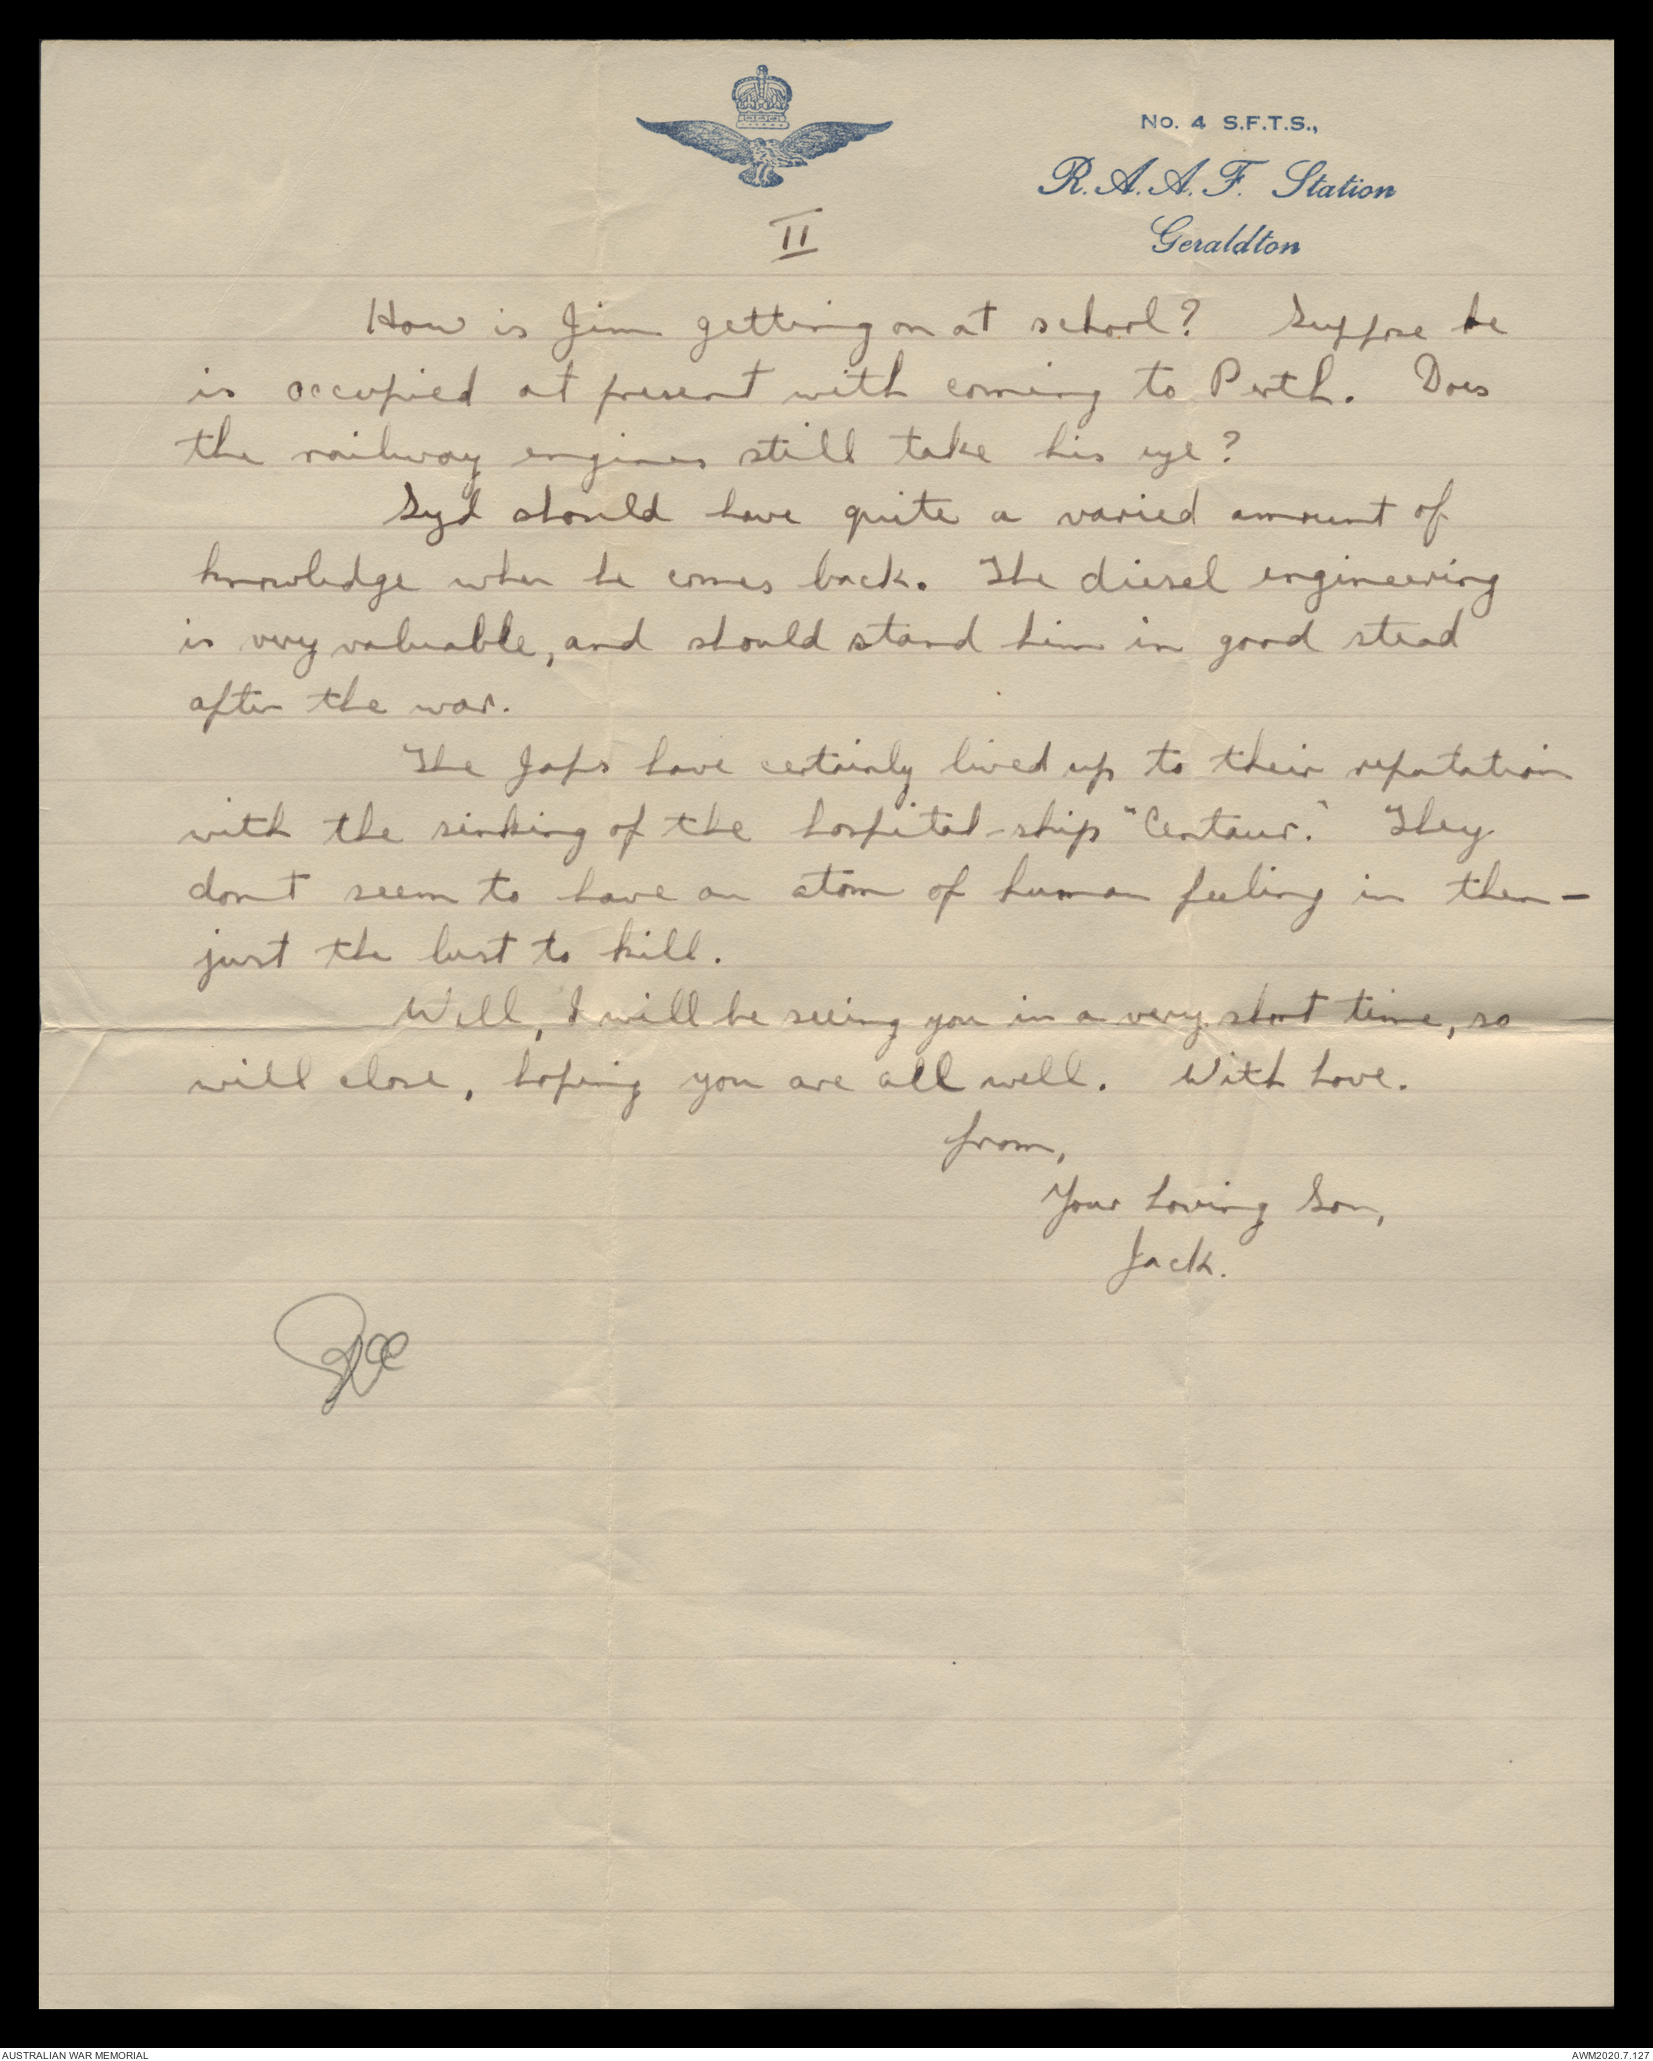 No. 4 S.F.T.S.,
R.A.A.F. Station
Geraldton
II
How is Jim getting on at school? Suppose he
is occupied at present with coming to Perth. Does
the railway engines still take his eye?
Syd should have quite a varied amount of
knowledge when he comes back. The diesel engineering
is very valuable, and should stand him in good stead
after the war.
The Japs have certainly lived up to their reputation
with the sinking of the hospital-ship "Centaur." They
don't seem to have an atom of human feeling in them -
just the lust to kill.
Well, I will be seeing you in a very short time, so
will close, hoping you are all well. With love.
from,
Your Loving Son,
Jack.
AUSTRALIAN WAR MEMORIAL
AWM2020.7.127